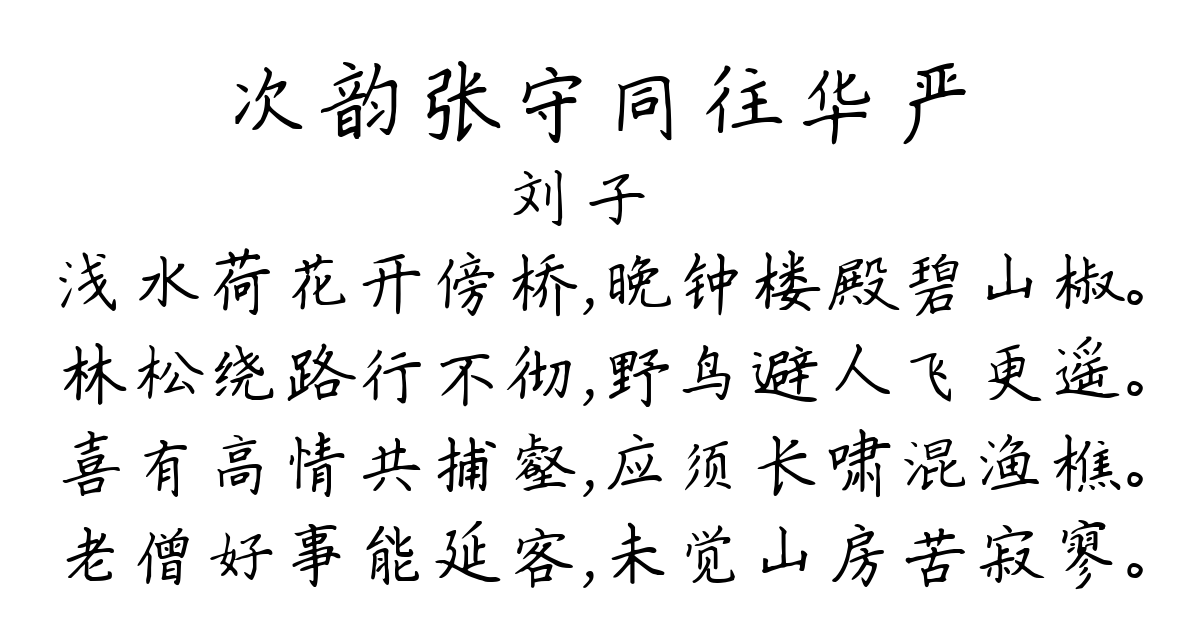 次韵张守同往华严
刘子
浅水荷花开傍桥,晚钟楼殿碧山椒。
林松绕路行不彻,野鸟避人飞更遥。
喜有高情共捕壑,应须长啸混渔樵。
老僧好事能延客,未觉山房苦寂寥。